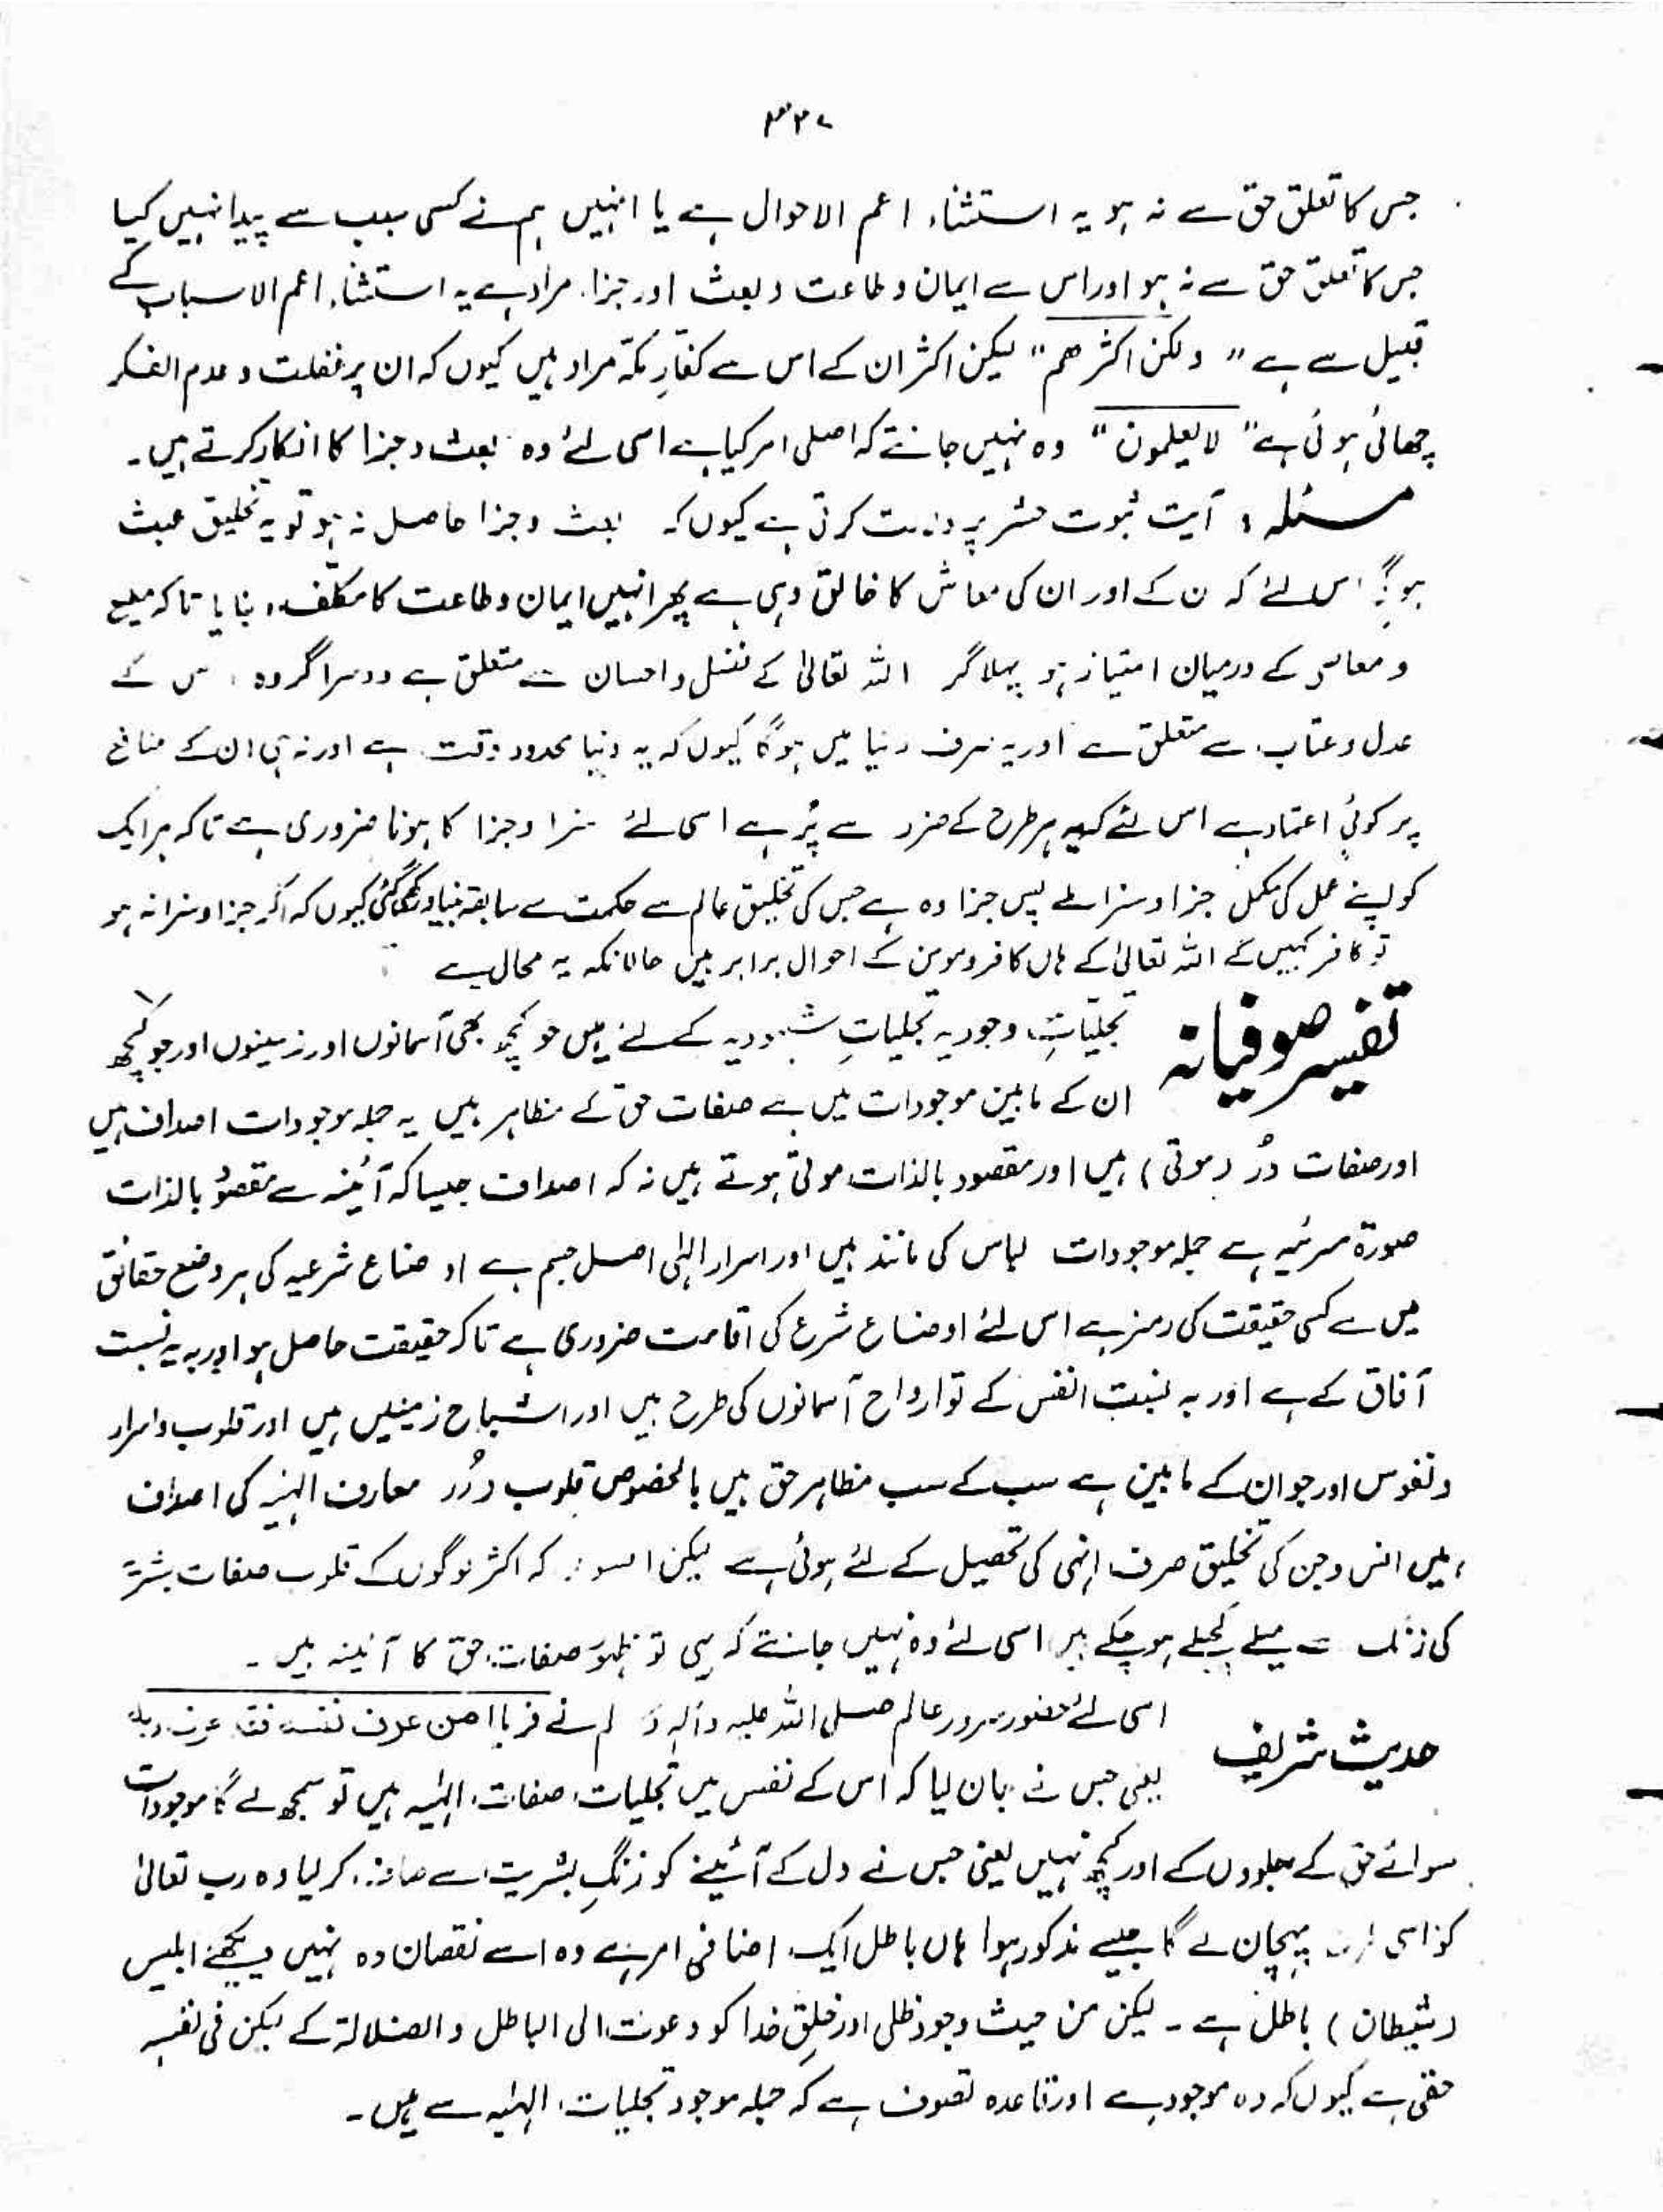 ۳۲۷
جس کا تعلق حق سے نہ ہو یہ استثناء اعم الاحوال ہے یا انہیں ہم نے کسی سبب سے پیدا نہیں کیا
جس کا تعلق حق سے نہ ہو اور اس سے ایمان و طاعت و بعث اور جزا، مراد ہے یہ استثناء اعم الاسباب کے
قبیل سے ہے " ولکن اکثرھم " لیکن اکثر ان کے اس سے کفارِ مکّہ مراد ہیں کیوں کہ ان پر غفلت و عدم الفکر
چھائی ہوئی ہے " لا یعلمون " وہ نہیں جانتے کہ اصلی امر کیا ہے اسی لئے وہ بعث و جزا کا انکار کرتے ہیں۔
مسئلہ : آیت ثبوت حشر پر دلالت کرتی ہے کیوں کہ بعث و جزا حاصل نہ ہو تو یہ تخلیق عبث
ہوگی اس لئے کہ ان کے اور ان کی معاش کا خالق وہی ہے پھر انہیں ایمان و طاعت کا مکلّف بنایا تاکہ مطیع
و معاصی کے درمیان امتیاز ہو پہلا گر اللہ تعالیٰ کے فضل و احسان سے متعلق ہے دوسرا گروہ اس کے
عدل و عتاب سے متعلق ہے اور یہ صرف دنیا میں ہوگا کیوں کہ یہ دنیا محدود وقت ہے اور نہ ہی ان کے منافع
پر کوئی اعتماد ہے اس لئے کہ یہ ہر طرح کے ضرر سے پُر ہے اسی لئے سزا و جزا کا ہونا ضروری ہے تاکہ ہر ایک
کو اپنے عمل کی مکمل جزا و سزا ملے پس جزا وہ ہے جس کی تخلیق عالم سے حکمت سے سابقہ بنیاد رکھی گئی کیوں کہ اگر جزا و سزا نہ ہو
تو کافر کہیں گے اللہ تعالیٰ کے ہاں کافر و مومن کے احوال برابر ہیں حالانکہ یہ محال ہے
تفسیر صوفیانہ تجلیاتِ وجودیہ تجلیاتِ شہودیہ کے لئے ہیں جو کچھ بھی آسمانوں اور زمینوں اور جو کچھ
ان کے مابین موجودات میں ہے صفات حق کے مظاہر ہیں یہ جملہ موجودات اصداف ہیں
اور صفات دُر (موتی) ہیں اور مقصود بالذات موتی ہوتے ہیں نہ کہ اصداف جیسا کہ آئینہ سے مقصود بالذات
صورۃ مرئیہ ہے جملہ موجودات لباس کی مانند ہیں اور اسرار الٰہی اصل جسم ہے اوضاع شرعیہ کی ہر وضع حقائق
میں سے کسی حقیقت کی رمز ہے اس لئے اوضاع شرع کی اقامت ضروری ہے تاکہ حقیقت حاصل ہو اور یہ بہ نسبت
آفاق کے ہے اور بہ نسبت انفس کے تو ارواح آسمانوں کی طرح ہیں اور اشباح زمینیں ہیں اور قلوب و اسرار
و نفوس اور جو ان کے مابین ہے سب کے سب مظاہر حق ہیں بالخصوص قلوب دُرر معارف الٰہیہ کی اصداف
ہیں انس و جن کی تخلیق صرف انہی کی تحصیل کے لئے ہوئی ہے لیکن افسوس کہ اکثر لوگوں کے قلوب صفات بشریّہ
کی زنگ سے میلے کچیلے ہو چکے ہیں اسی لئے وہ نہیں جانتے کہ یہی تو ظہورِ صفات حق کا آئینہ ہیں۔
حدیث شریف اسی لئے حضور سرور عالم صلی اللہ علیہ وآلہ وسلم نے فرمایا من عرف نفسہ فقد عرف ربہ
یعنی جس نے جان لیا کہ اس کے نفس میں تجلیات صفات الٰہیہ ہیں تو سمجھ لے گا موجودات
سوائے حق کے جلووں کے اور کچھ نہیں یعنی جس نے دل کے آئینے کو زنگِ بشریت سے صاف کر لیا وہ رب تعالیٰ
کو اسی طرح پہچان لے گا جیسے مذکور ہوا ہاں باطل ایک اضافی امر ہے وہ اسے نقصان دہ نہیں دیکھئے ابلیس
(شیطان) باطل ہے۔ لیکن من حیث وجود ظلی اور خلقِ خدا کو دعوت الی الباطل و الضلالۃ کے لیکن فی نفسہ
حق ہے کیوں کہ وہ موجود ہے اور قاعدہ تصوف ہے کہ جملہ موجود تجلیات الٰہیہ سے ہیں۔